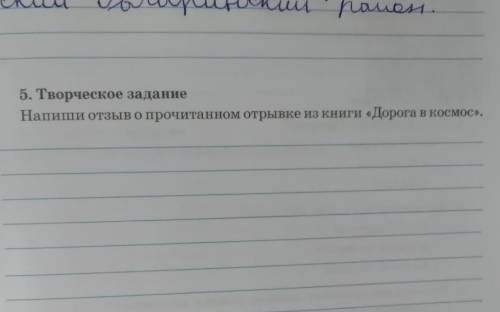 район.
5. Творческое задание
Напиши отзыв о прочитанном отрывке из книги «Дорога в космос».